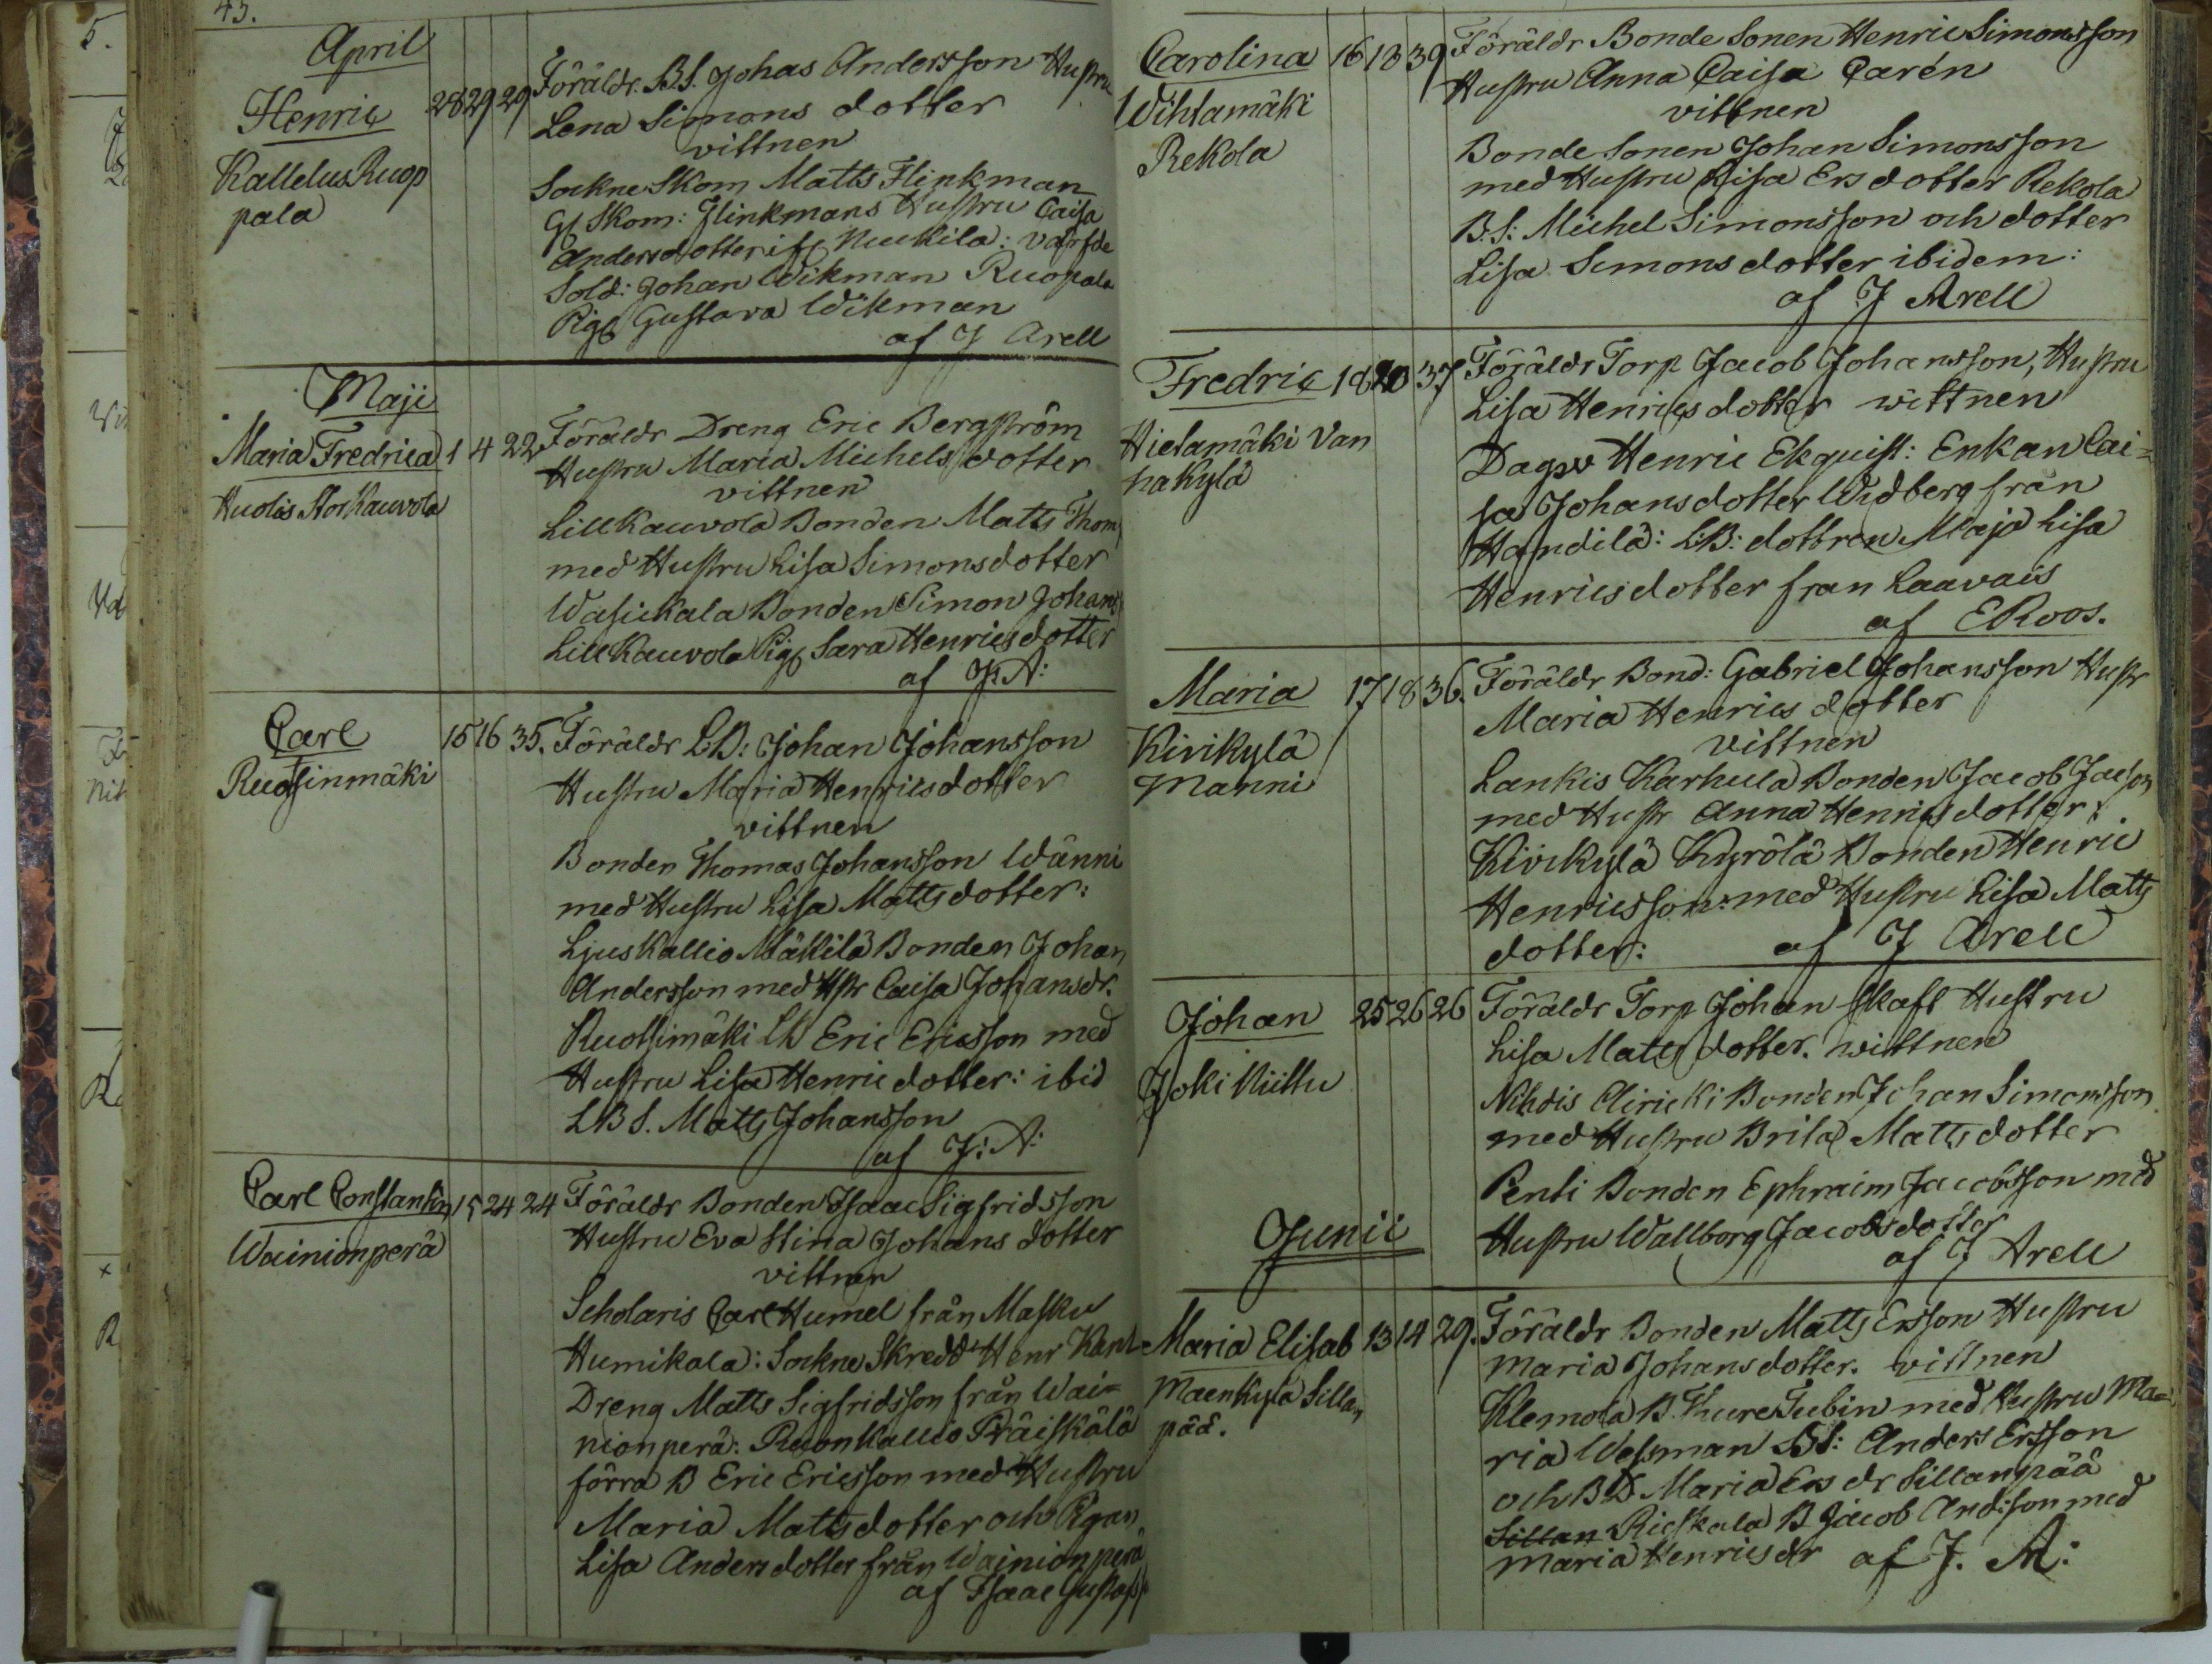 43.
April
Henric 28 29 29 Föräldr. B.S. Johas Andersson Hustru
Lena Simons dotter
vittnen
Kallelus Ruop
pala
Sockne Skom Matts Flinkman
Gl Skom: Flinkmans Hustru Caisa
Andersdotter ifr Nuckila: Varfde
Sold: Johan Wikman Ruopala
Pig Gustava Wikman
af J Arell
Maji
Maria Fredrica 1 4 22 Föräldr Dreng Eric Bergström
Hustru Maria Michels dotter
vittnen
Huolis StorKauvola
LillKauvola Bonden Matts Thom
med Hustru Lisa Simonsdotter
Wasickala Bonden Simon Johans
LillKauvola Pig Sara Henricsdotter
af J: A:
Carl 15 16 35. Föräldr L.B: Johan Johansson
Ruotsinmäki
Hustru Maria Henricsdotter
vittnen
Bonden Thomas Johansson Wänni
med Hustru Lisa Mattsdotter:
Ljuskallio Mäkilä Bonden Johan
Andersson med Hstr Caisa Johansdr.
Ruotsimäki LB Eric Ericsson med
Hustru Lisa Henricdotter: ibid
LBS. Matts Johansson
af J: A:
Carl Constantin 15 24 24 Föräldr Bonden Isaac Sigfridsson
Wainionperä
Hustru Eva Stina Johans dotter
vittnen
Scholaris Carl Humel från Masku
Humikala: Sockne Skredd Henr Kant
Dreng Matts Sigfridsson från Wai=
nionperä: Ruonkallio Präiskälä
förra B Eric Ericsson med Hustru
Maria Mattsdotter och Pigan
Lisa Andersdotter från Wainionperä
af Isaac Gustafss
Carolina 16 18 39 Föräldr Bonde Sonen Henric Simonsson
Wihtamäki
Rekola
Hustru Anna Caisa Carén
vittnen
Bonde Sonen Johan Simonsson
med Hustru Lisa Ersdotter Rekola
B.S: Michel Simonsson och dotter
Lisa Simonsdotter ibidem:
af J Arell
Fredric 18 20 37 Föräldr Torp Jacob Johansson, Hustru
Lisa Henricsdotter wittnen
Hietamäki Van
hakylä
Dagsv Henric Ekquist: Enkan Cai=
sa Johansdotter Widberg från
Handilä: LB: dottren Maja Lisa
Henricsdotter från Laavais
af E Roos.
Maria 17 18 36. Föräldr Bond: Gabriel Johansson Hustr
Maria Henrics dotter
vittnen
Kivikylä
Manni
Lankis Karhula Bonden Jacob Jacson
med Hustr Anna Henricsdotter:
Kivikylä Kyrölä Bonden Henric
Henricsson: med Hustru Lisa Matts
dotter: af J Arell
Johan 25 26 26 Föräldr Torp Johan Skaft Hustru
Lisa Matts dotter. wittnen
Joki Kiittu
Nihdis Äiricki Bonden Johan Simonsson
med Hustru Brita Mattsdotter
Penti Bonden Ephraim Jacobsson med
Hustru Wallborg Jacobsdotter
af J Arell
Junii
Maria Elisab 13 14 29. Föräldr Bonden Matts Ersson Hustru
Maria Johansdotter. vittnen
Maenkyla Sillan
pää.
Klemola B. Thure Tubin med Hustru Ma=
ria Wessman BS: Anders Ersson
och BD Maria Ers dr Sillanpää
Sillan Rieskala B Jacob Andsson med
Maria Henricsdr af J. A: